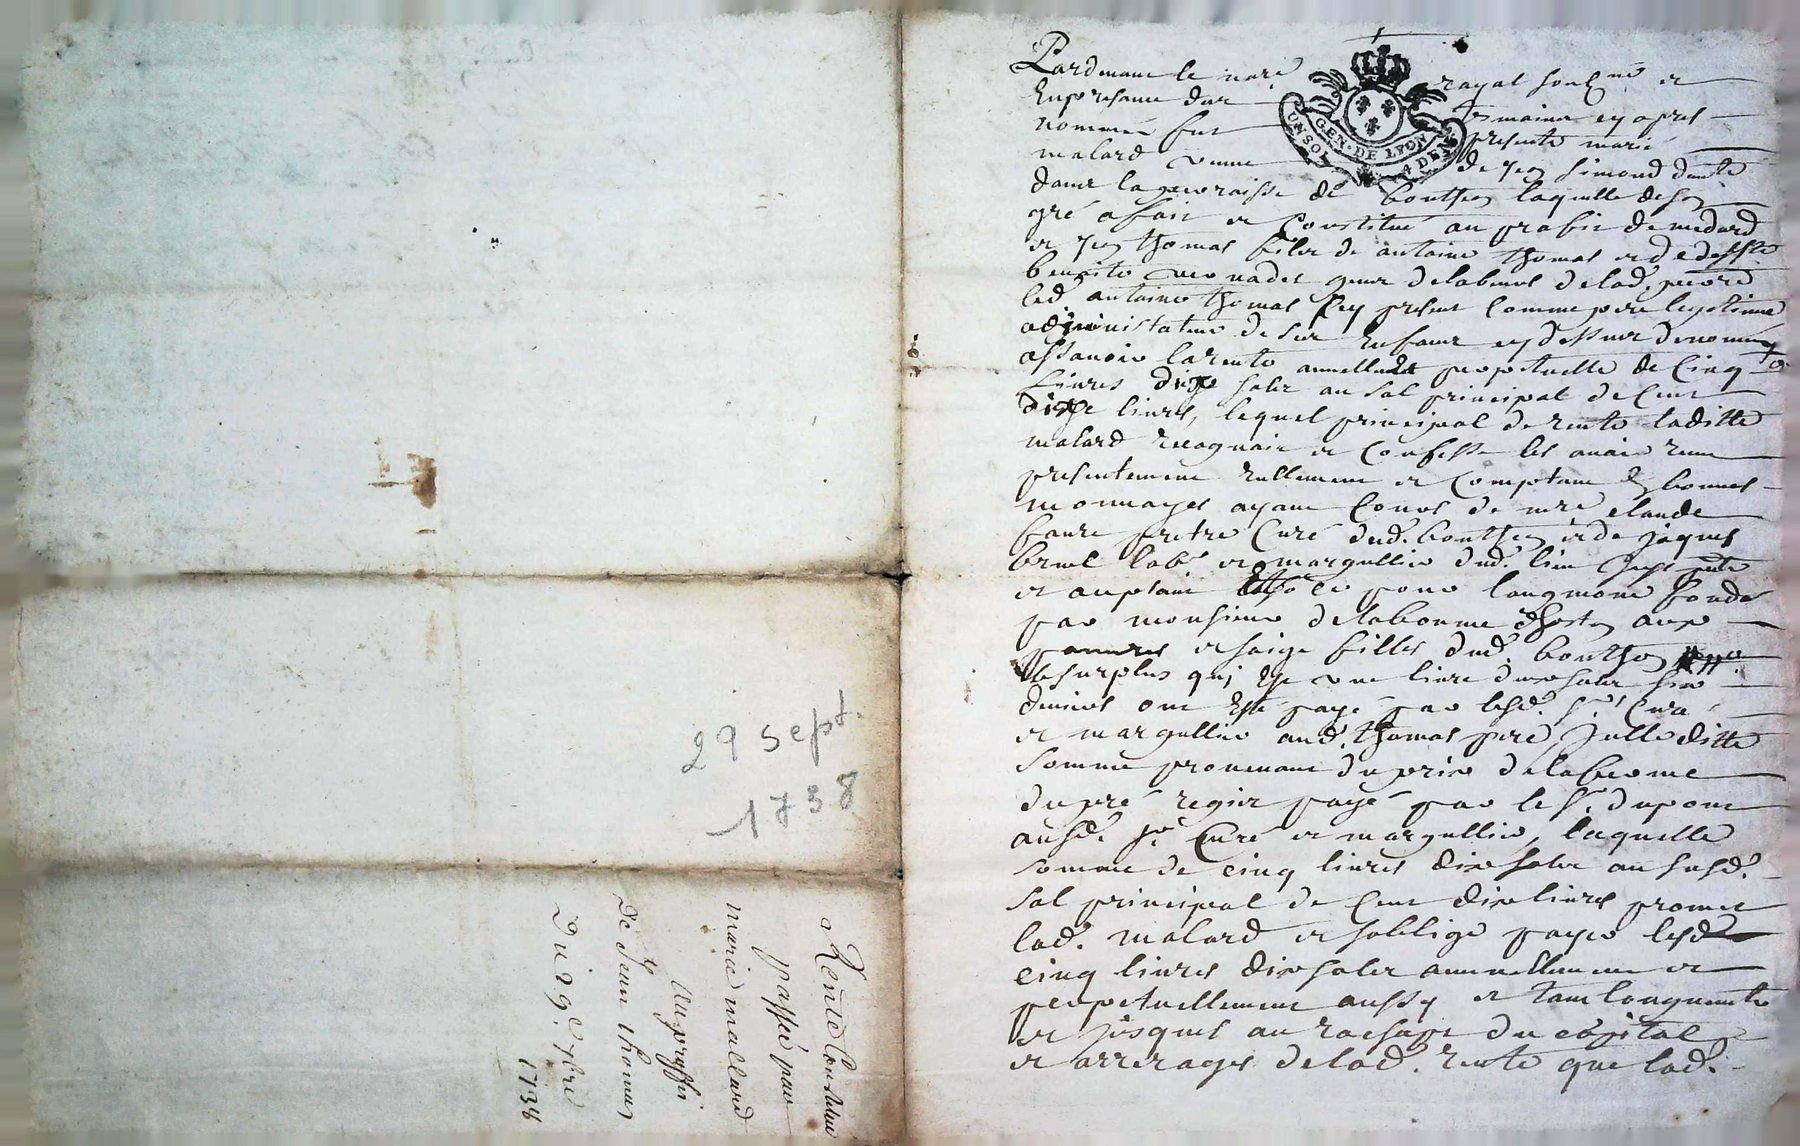 29 sept.
1738
Rente Constituée
passée par
marie mallard
Au proffit
de Jean thomas
Du 29e 7bre
1738
Pardevant le nore royal soubné et
En presance des tesmains cy apres
nommés fut presente marie
malard veuve de Jean Simond dte
dans la parroisse de bouthon laquelle de son
gré a fait et Constitué au profit de medard
et Jean thomas fils de antoine thomas et de deffte
benoite laboureur de lad. parre
led. antoine thomas Icy present Comme pere legitime
administrateur de ses Enfans cy dessus denommés
assavoir la rente annuelle et perpetuelle de Cinq
Livres dixe sols au sol principal de Cent
dixe livres, lequel principal de rente laditte
malard recognoit et Confesse les avoir reçeu
presentement reellement et Comptant En bonnes
monnayes ayant Cours de mre claude
faure pretre Curé dud. bouthon et de jaques
bruel labr et marguillier dud. lieu
et par Monsieur de labaume d'hostun aux
pauvres et saige filles dud. bouthon
le surplus qui Est une livre dixe sols six
deniers ont Esté payé par lesd. sr. Curé
et margullier aud. thomas pere, Jcelle ditte
somme provenant du prix de la ferme
du pré regier payé par le sr. dupont
ausd. sr. Curé et marguillier, laquelle
somme de cinq livres dixe sols au susd.
sol principal de Cent dixe livres promet
lad. malard et soblige payer lesd
cinq livres dixe sols annuellement et
perpetuellement aussy et tant longuement
et jusques au rachapt du capital
et arrerages de lad. rente que lad.
UN SOL
GEN. DE LYON
4 DEN